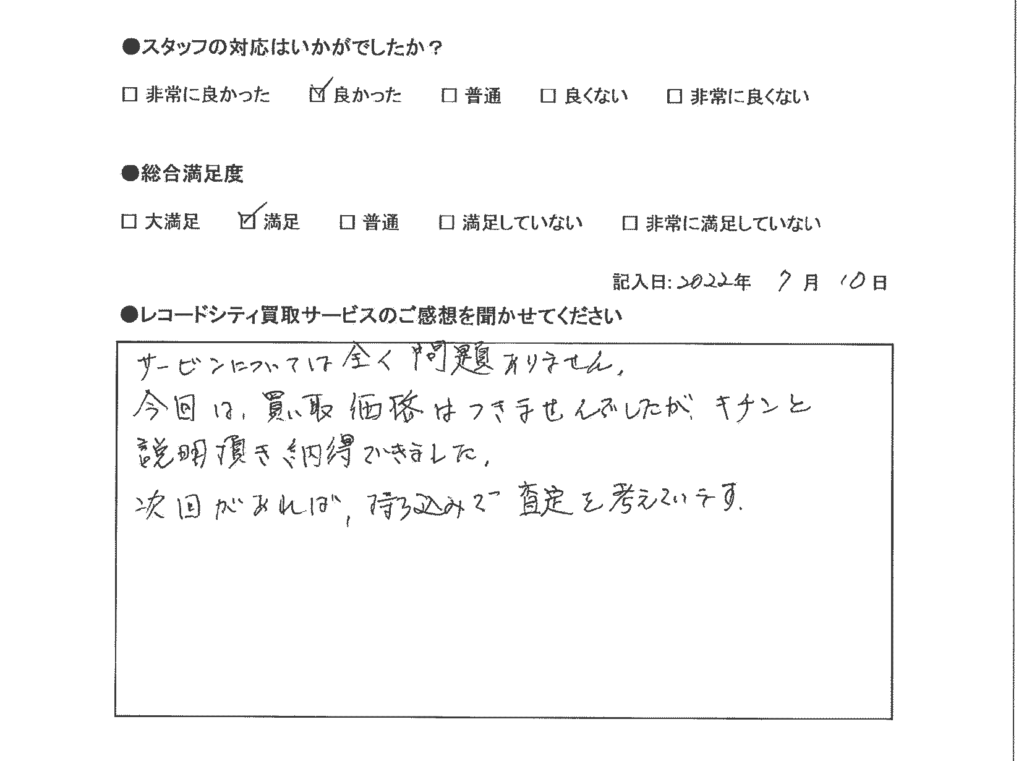 ●スタッフの対応はいかがでしたか？
□ 非常に良かった ☑ 良かった □ 普通 □ 良くない □ 非常に良くない
●総合満足度
□ 大満足 ☑ 満足 □ 普通 □ 満足していない □ 非常に満足していない
記入日: 2022年 7月 10日
●レコードシティ買取サービスのご感想を聞かせてください
サービスについては全く問題ありません。
今回は、買い取価格はつきませんでしたが、キチンと
説明頂き納得できました。
次回があれば、持ち込みで査定を考えています。